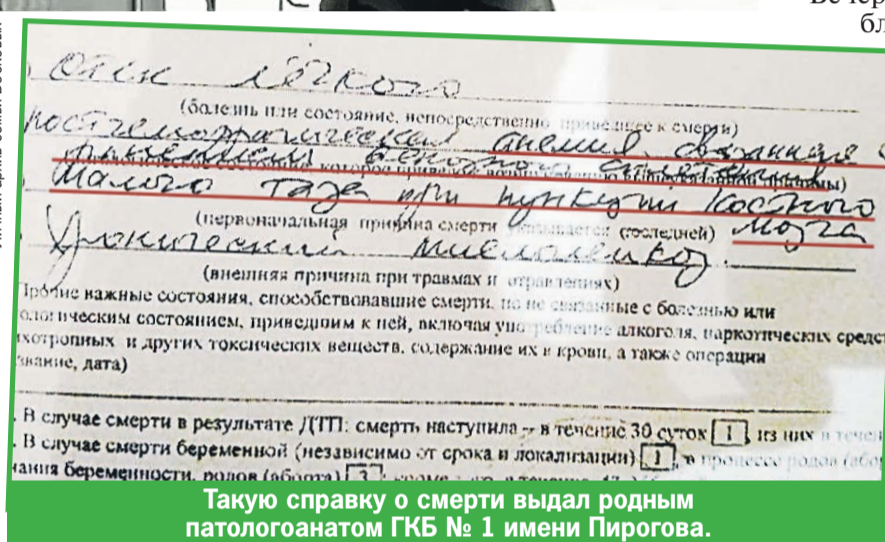 Вечер
бл
Отек лёгкого
(болезнь или состояние, непосредственно приведшее к смерти)
постгеморрагическая анемия, связанная с
ранением венозного сплетения
малого таза при пункции костного
мозга
(первоначальная причина смерти указывается последней)
Хронический миелолейкоз.
(внешняя причина при травмах и отравлениях)
Прочие важные состояния, способствовавшие смерти, но не связанные с болезнью или
ологическим состоянием, приведшим к ней, включая употребление алкоголя, наркотических средст
ихотропных и других токсических веществ, содержание их в крови, а также операции
звание, дата)
. В случае смерти в результате ДТП: смерть наступила – в течение 30 суток 1, из них в течени
. В случае смерти беременной (независимо от срока и локализации) 1, в процессе родов (абор
чания беременности, родов (аборта) 3
Такую справку о смерти выдал родным
патологоанатом ГКБ № 1 имени Пирогова.